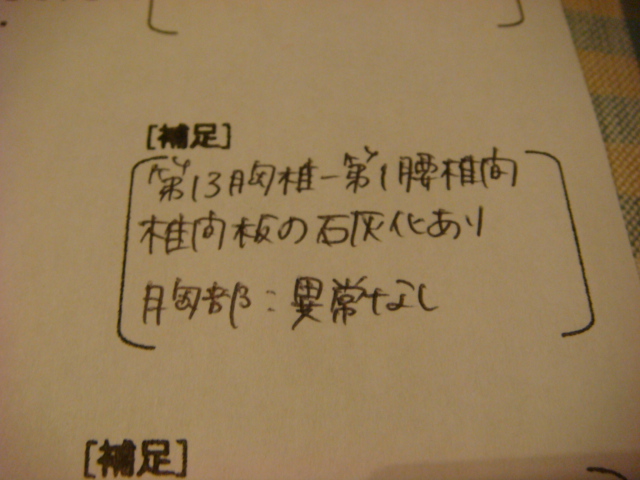 [補足]
第13胸椎-第1腰椎間
椎間板の石灰化あり
胸部:異常なし
[補足]